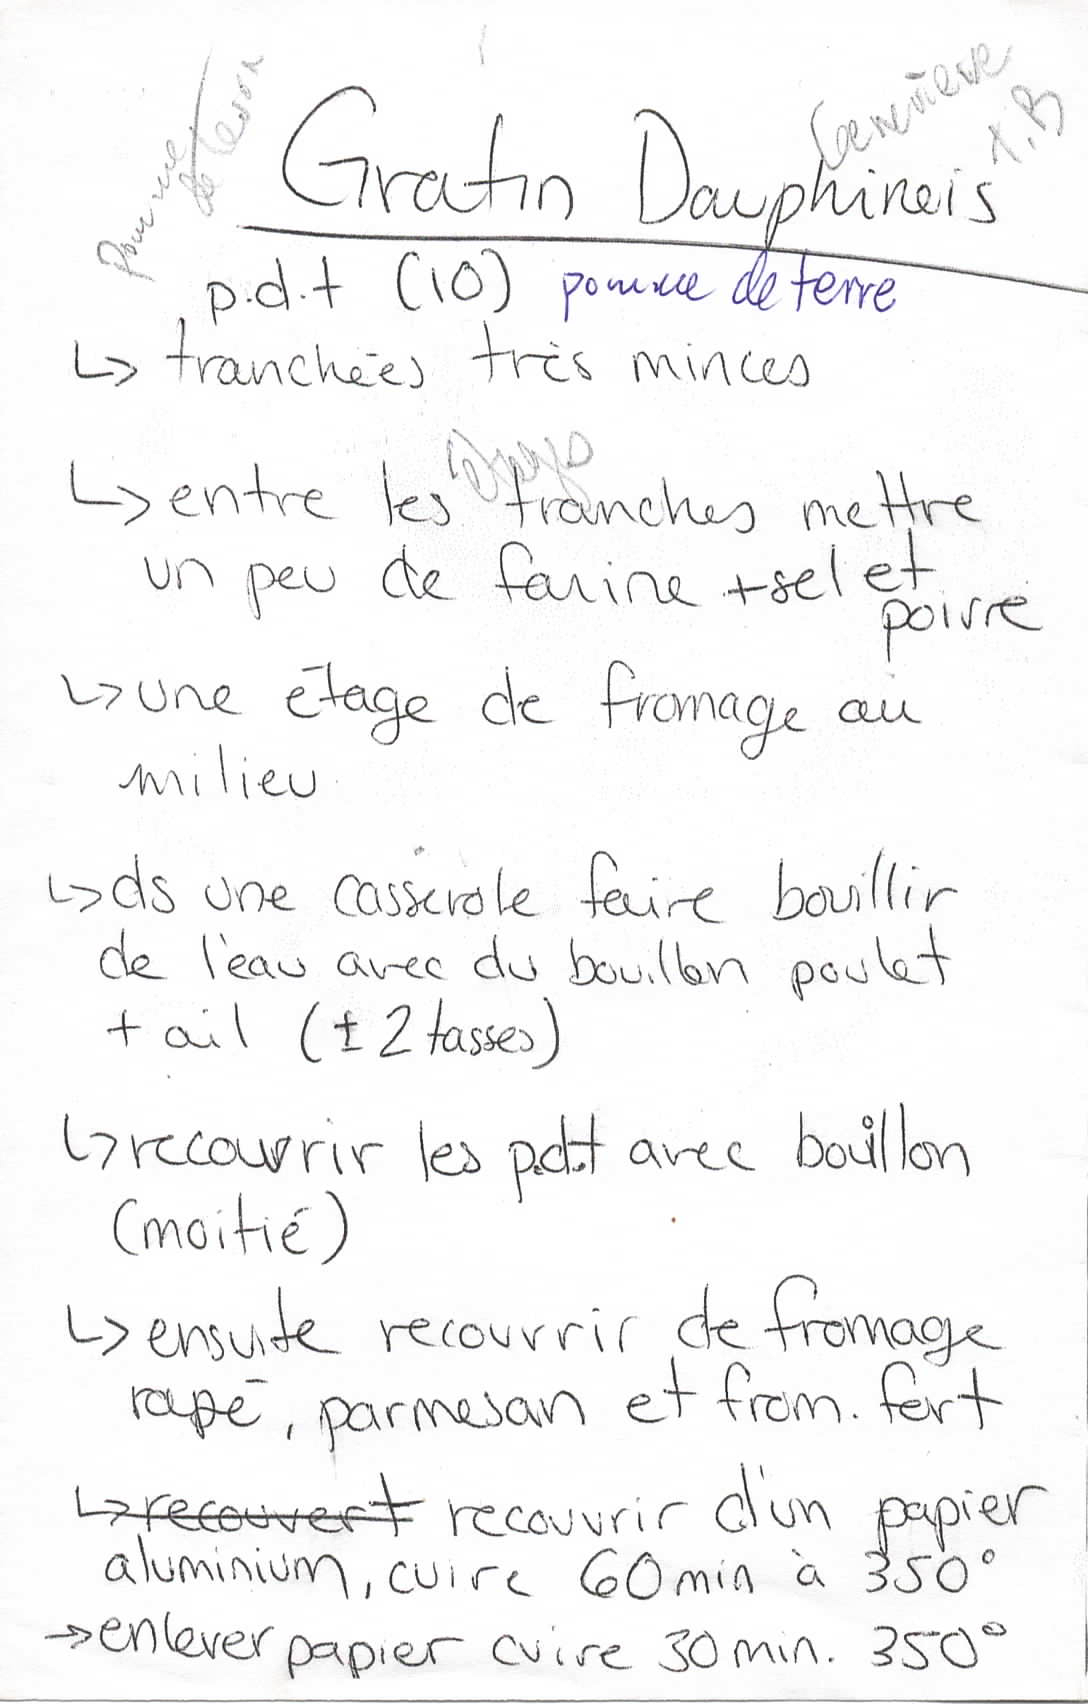 Pomme de terre
Geneviève
T.B
Gratin Dauphineis
p.d.t (10) pomme de terre
↳ tranchées très minces
↳ entre les tranches mettre
un peu de farine + sel et
poivre
↳ une étage de fromage au
milieu
↳ ds une casserole faire bouillir
de l'eau avec du bouillon poulet
+ ail (± 2 tasses)
↳ recouvrir les p.d.t avec bouillon
(moitié)
↳ ensuite recouvrir de fromage
rapé, parmesan et from. fort
↳ recouvert recouvrir d'un papier
aluminium, cuire 60 min à 350°
→ enlever papier cuire 30 min. 350°